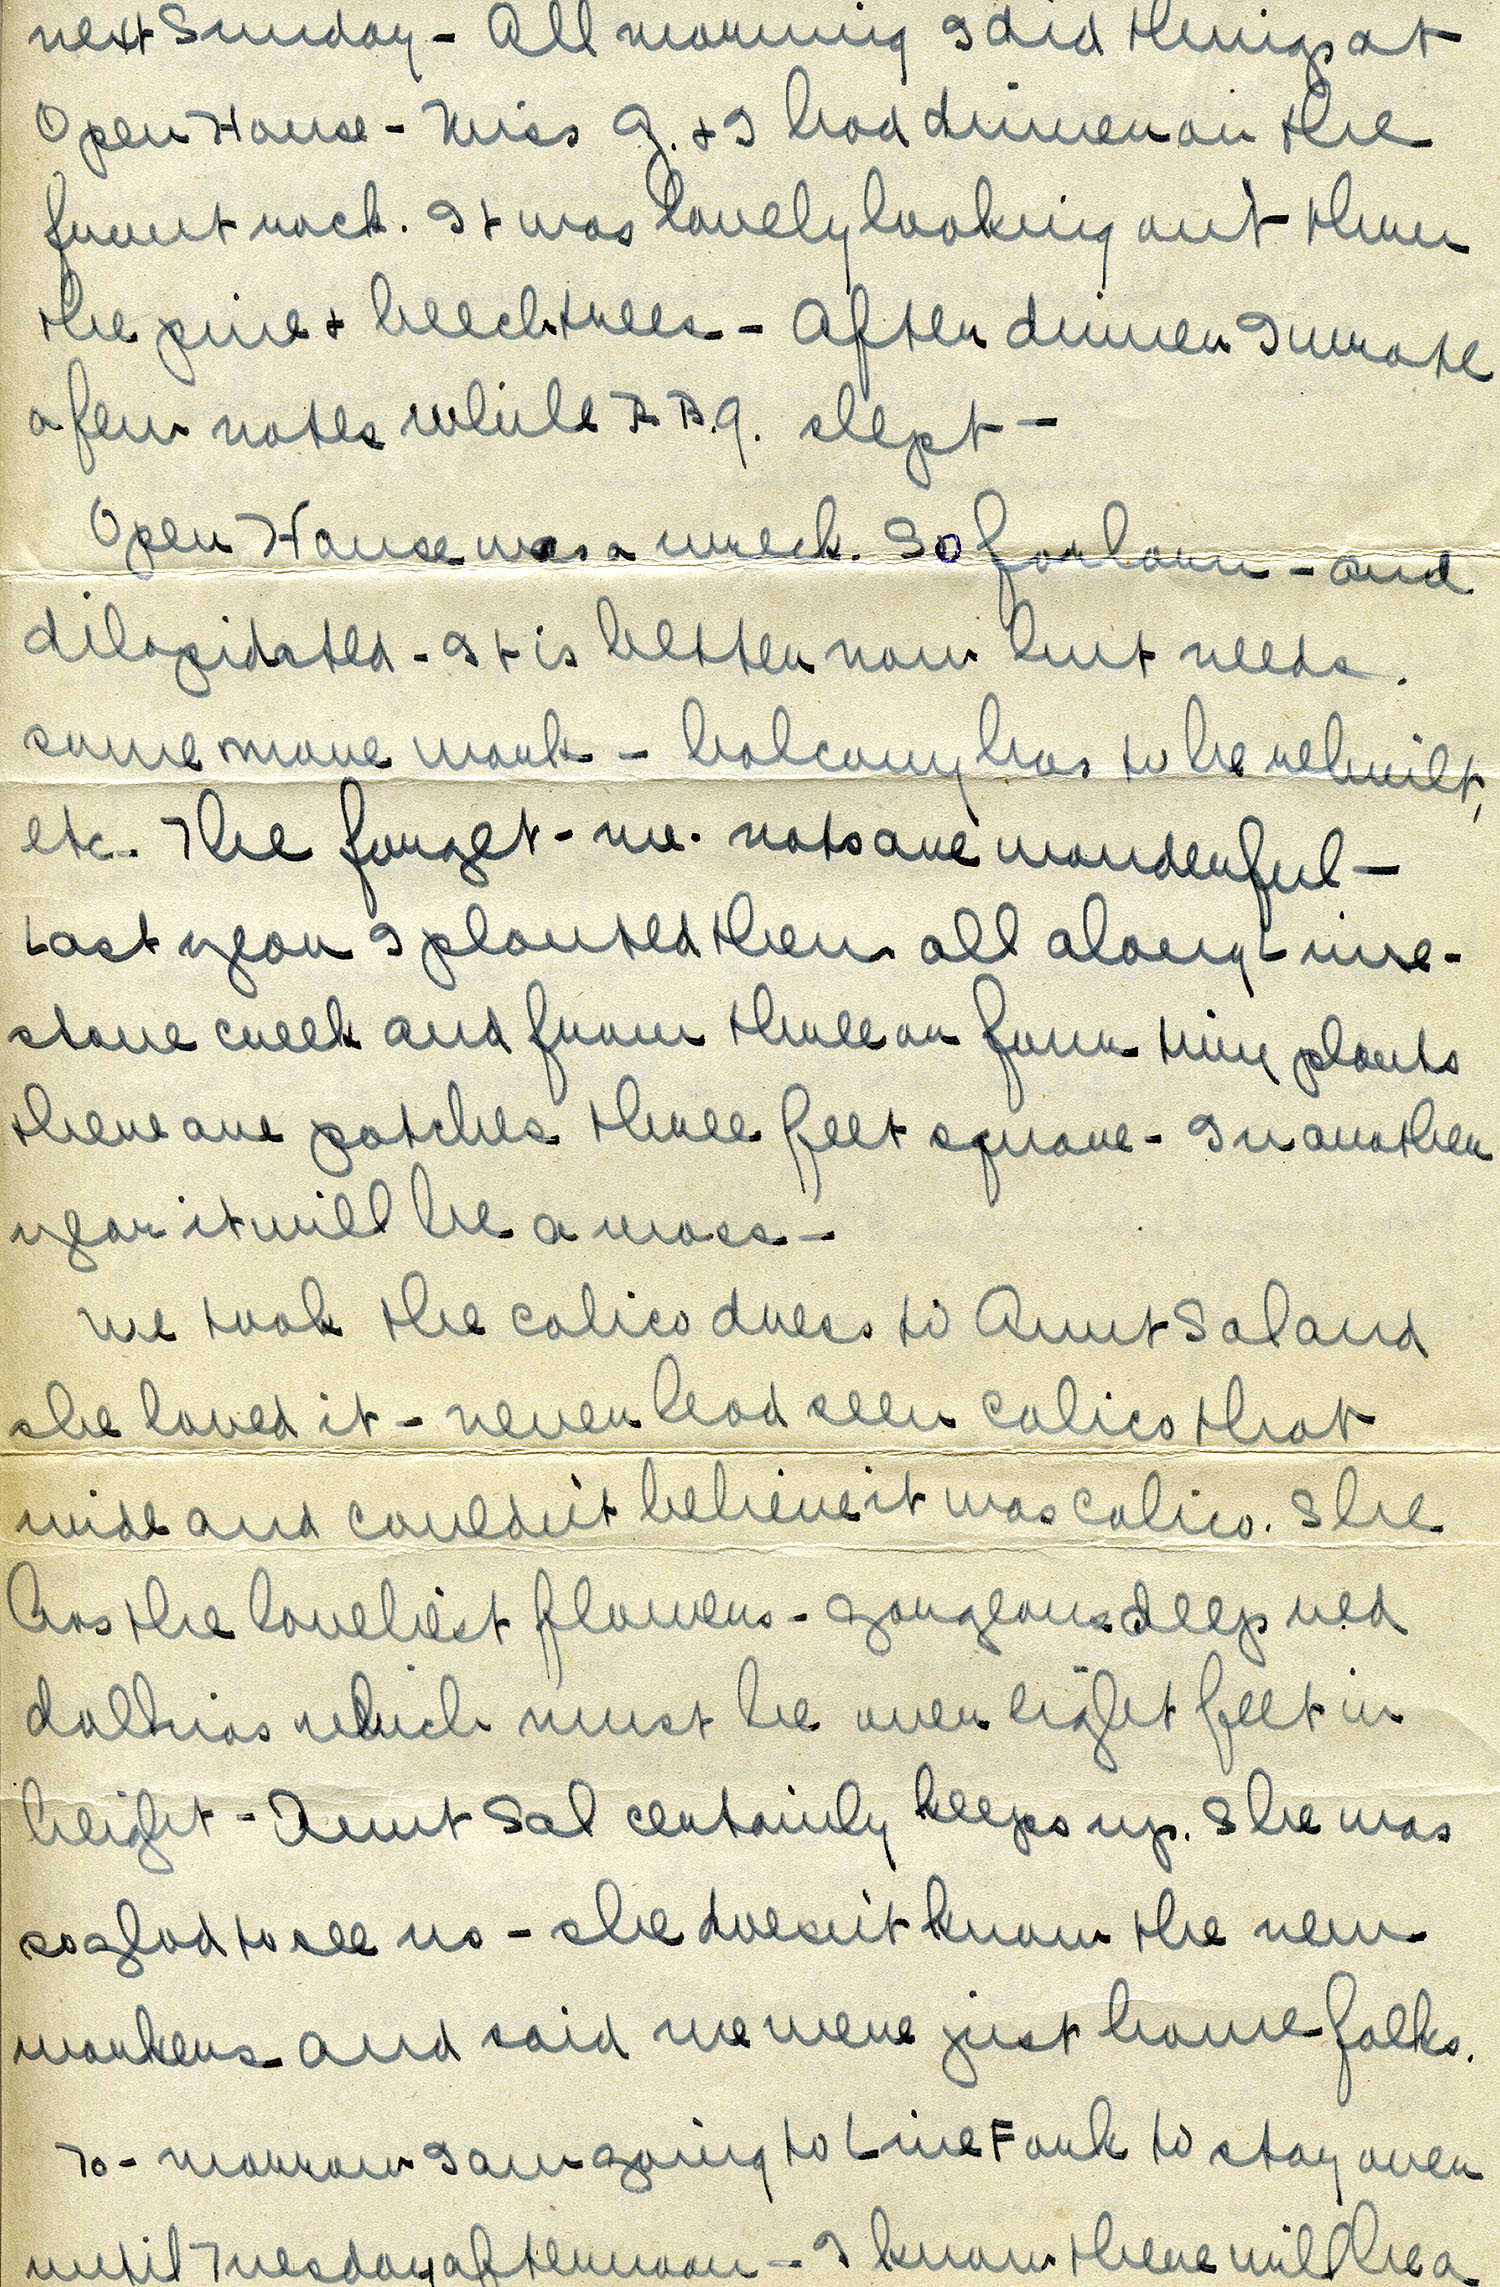 next Sunday - All morning I did things at
Open House - Miss G. + I had dinner on the
front rock. It was lovely looking out thru
the pine + beech trees - After dinner I wrote
a few notes while R.B.G. slept -
Open House was a wreck. So forlorn - and
dilapidated - It is better now but needs.
some more work - balcony has to be rebuilt,
etc. The forget-me-nots are wonderful -
Last year I planted them all along Lime-
stone creek and from three or four tiny plants
there are patches three feet square - In another
year it will be a mass -
We took the calico dress to Aunt Sal and
she loved it - never had seen calico that
wide and couldn't believe it was calico. She
has the loveliest flowers - gorgeous deep red
dalhias which must be over eight feet in
height - Aunt Sal certainly keeps up. She was
so glad to see us - she doesn't know the new
workers and said we were just home folks.
To-morrow I am going to Line Fork to stay over
until Tuesday afternoon - I know there will be a